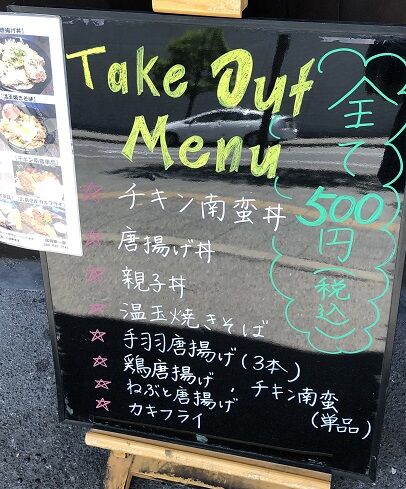 Take Out
Menu
全て
500
円
(税込)
☆ チキン南蛮丼
☆ 唐揚げ丼
☆ 親子丼
☆ 温玉焼きそば
☆ 手羽唐揚げ(3本)
☆ 鶏唐揚げ, チキン南蛮
(単品)
☆ ねぶと唐揚げ
☆ カキフライ